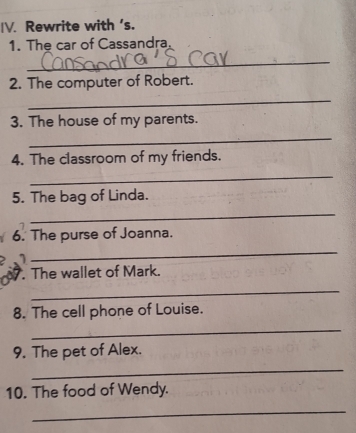 IV. Rewrite with 's.
1. The car of Cassandra.
Cansandra's car
2. The computer of Robert.
3. The house of my parents.
4. The classroom of my friends.
5. The bag of Linda.
6. The purse of Joanna.
7. The wallet of Mark.
8. The cell phone of Louise.
9. The pet of Alex.
10. The food of Wendy.